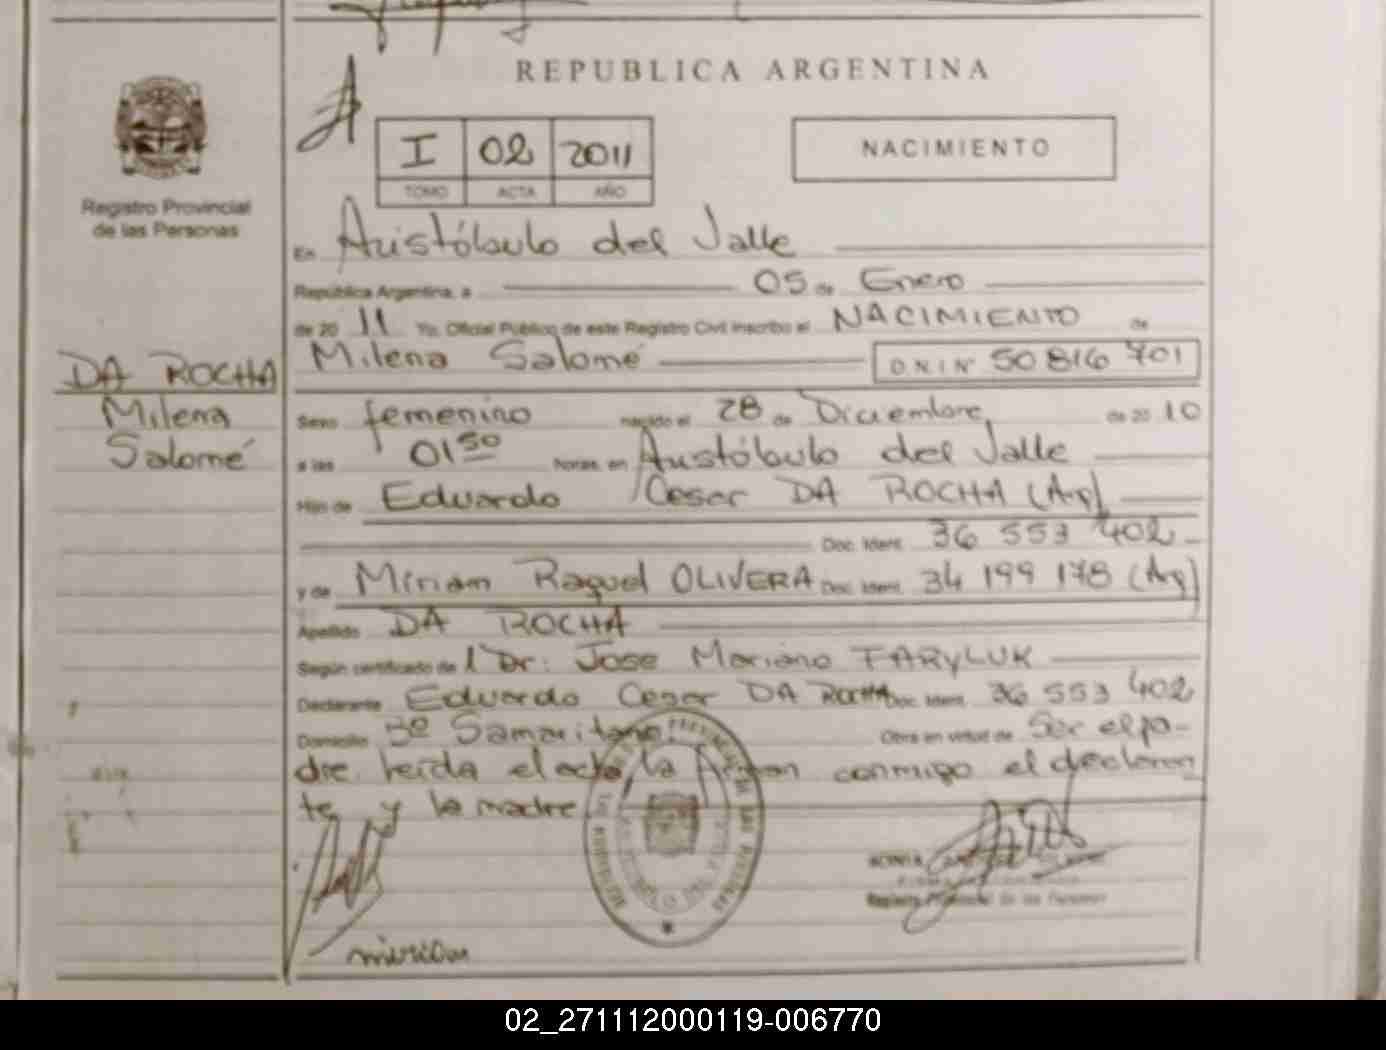 REPUBLICA ARGENTINA
I 02 2011
TOMO ACTA AÑO
NACIMIENTO
Registro Provincial
de las Personas
En Aristóbulo del Valle
República Argentina, a 05 de Enero
de 20 11 Yo, Oficial Público de este Registro Civil inscribo el NACIMIENTO de
Milena Salomé DNI Nº 50 816 701
DA ROCHA
Milena
Salomé
Sexo femenino nacido el 28 de Diciembre de 20 10
a las 01 50 horas en Aristóbulo del Valle
Hijo de Eduardo Cesar DA ROCHA (Arg)
Doc. Ident. 36 553 402
y de Miriam Raquel OLIVERA Doc. Ident. 34 199 178 (Arg)
Apellido DA ROCHA
Según certificado de l Dr: Jose Mariano FARYLUK
Declarante Eduardo Cesar DA ROCHA Doc. Ident. 36 553 402
Domicilio Bº Samaritano. Obra en virtud de Ser el pa-
dre. leída el acta la firman conmigo el declaran
te y la madre
Registro Provincial de las Personas
miriam
02_271112000119-006770